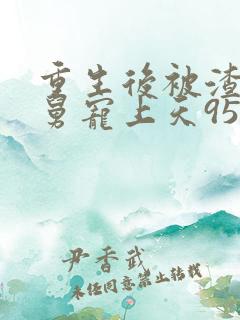 重生後被渣
舅寵上天95
尹香武
未经同意禁止转载